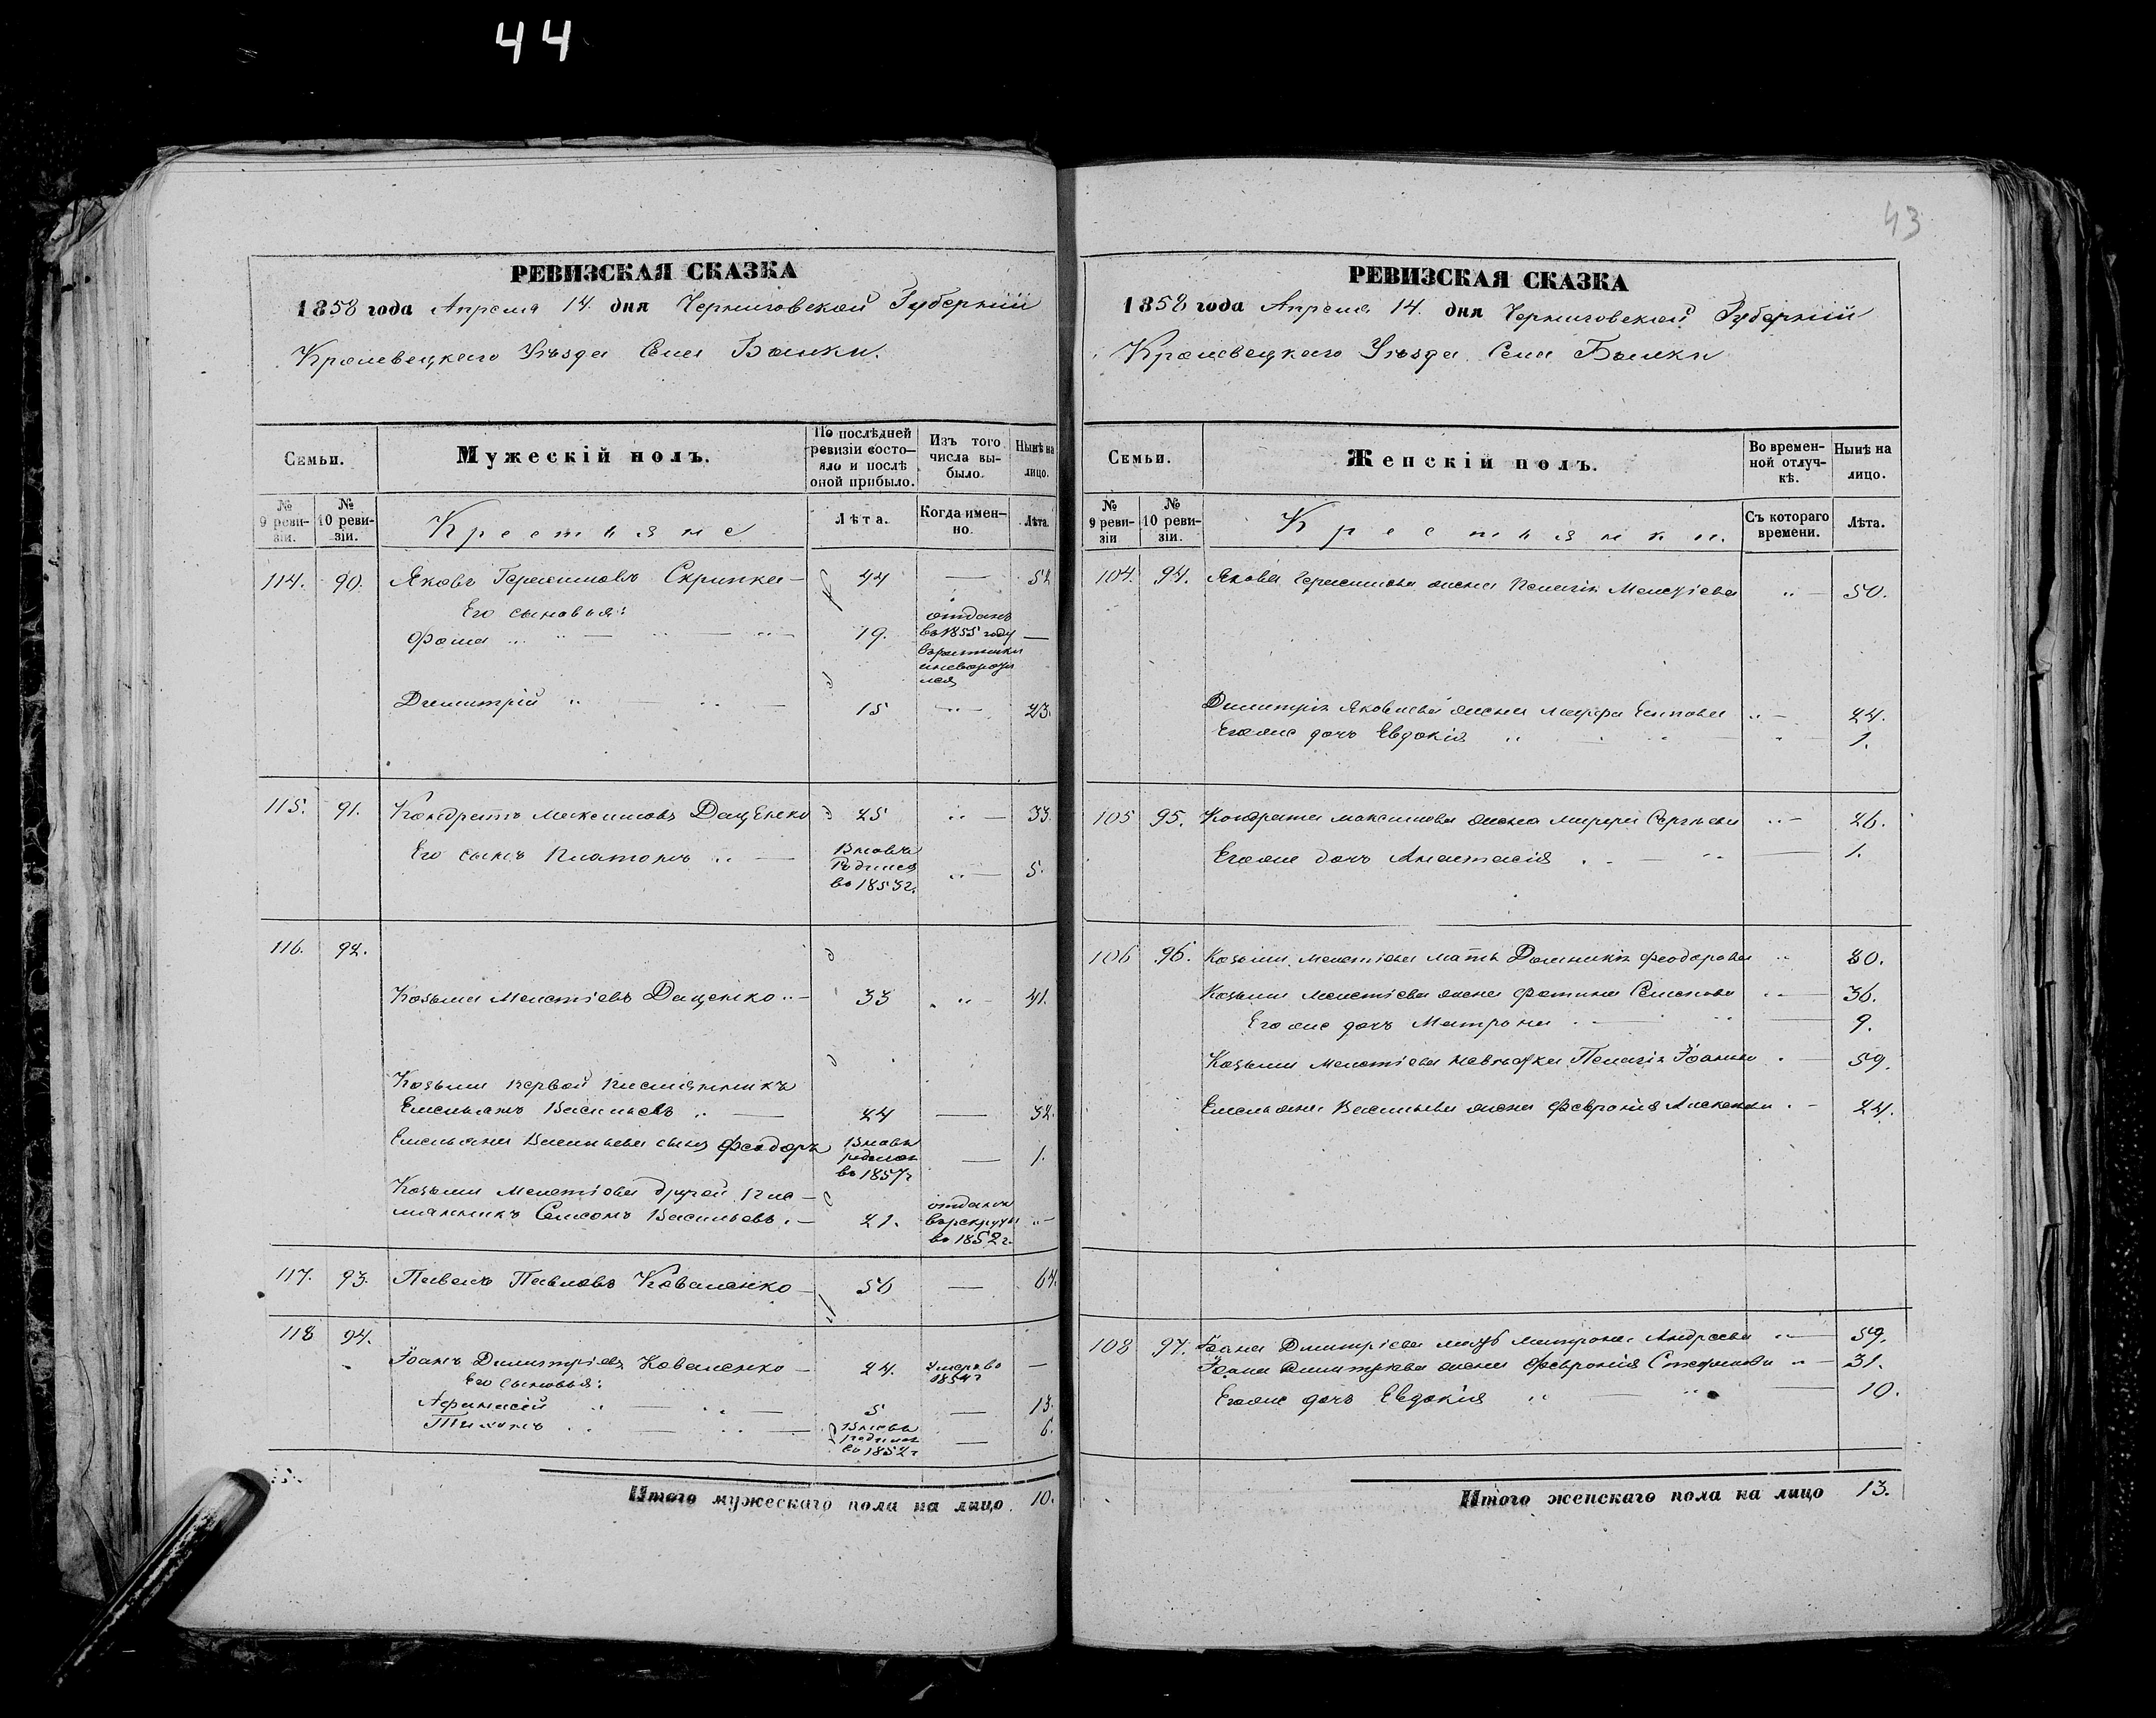 44
43
РЕВИЗСКАЯ СКАЗКА
1858 года Апреля 14. дня Черниговской Губерніи
Кролевецкаго Уѣзда Села
Семьи.
Мужескій полъ.
По послѣдней ревизіи состояло и послѣ оной прибыло.
Изъ того числа выбыло.
Нынѣ на лицо.
№ 9 ревизіи.
№ 10 ревизіи.
Крестьяне
Лѣта.
Когда именно.
Лѣта.
114. 90. Яковъ Герасимовъ Скрипка — 44 — 52
Его сыновья:
Фома 19. отданъ въ 1855 году —
Димитрій 15 — 23.
115. 91. Кондратъ Максимовъ Даценко 25 — 33.
Его сынъ Платонъ Вновь родился въ 1853 г. — 5.
116. 92.
Козьма Мелетіевъ Даценко 33 41.
Козьмы первой племянникъ
Емельянъ Васильевъ 24 — 32.
Емельяна Васильева сынъ Феодоръ Вновь родился въ 1857 г — 1.
Козьмы Мелетіева другой пле—
мянникъ Самсонъ Васильевъ 21. отданъ въ рекруты въ 1852 г.
117. 93. Павелъ Павловъ Коваленко — 56 — 64.
118 94.
Іоанъ Димитріевъ Коваленко — 24. Умеръ въ 1854 г —
Его сыновья:
Афанасій 5 — 13.
Тихонъ Вновь родился въ 1852 г — 6.
Итого мужескаго пола на лицо 10.
РЕВИЗСКАЯ СКАЗКА
1858 года Апреля 14. дня Черниговской Губерніи
Кролевецкаго Уѣзда Села
Семьи.
Женскій полъ.
Во временной отлучкѣ.
Нынѣ на лицо.
№ 9 ревизіи
№ 10 ревизіи.
Крестьянки.
Съ котораго времени.
Лѣта.
104. 94. Якова Герасимова жена Пелагія 50.
Димитрія Яковлева жена Марфа 24.
Его же дочь Евдокія 1.
105 95. Кондрата Максимова жена Сергѣева 26.
Его же дочь Анастасія 1.
106 96. Козьмы Мелетіева мать Домникія Феодорова 80.
Козьмы Мелетіева жена Фотина Семенова 36.
Его же дочь Матрона 9.
Козьмы Мелетіева невѣстка Пелагія Іоанова 59.
Емельяна Васильева жена Февронія 24.
108 97. Іоана Димитріева мать Матрона Андреева 59.
Іоана Димитріева жена Февронія Стефанова 31.
Его же дочь Евдокія 10.
Итого женскаго пола на лицо 13.